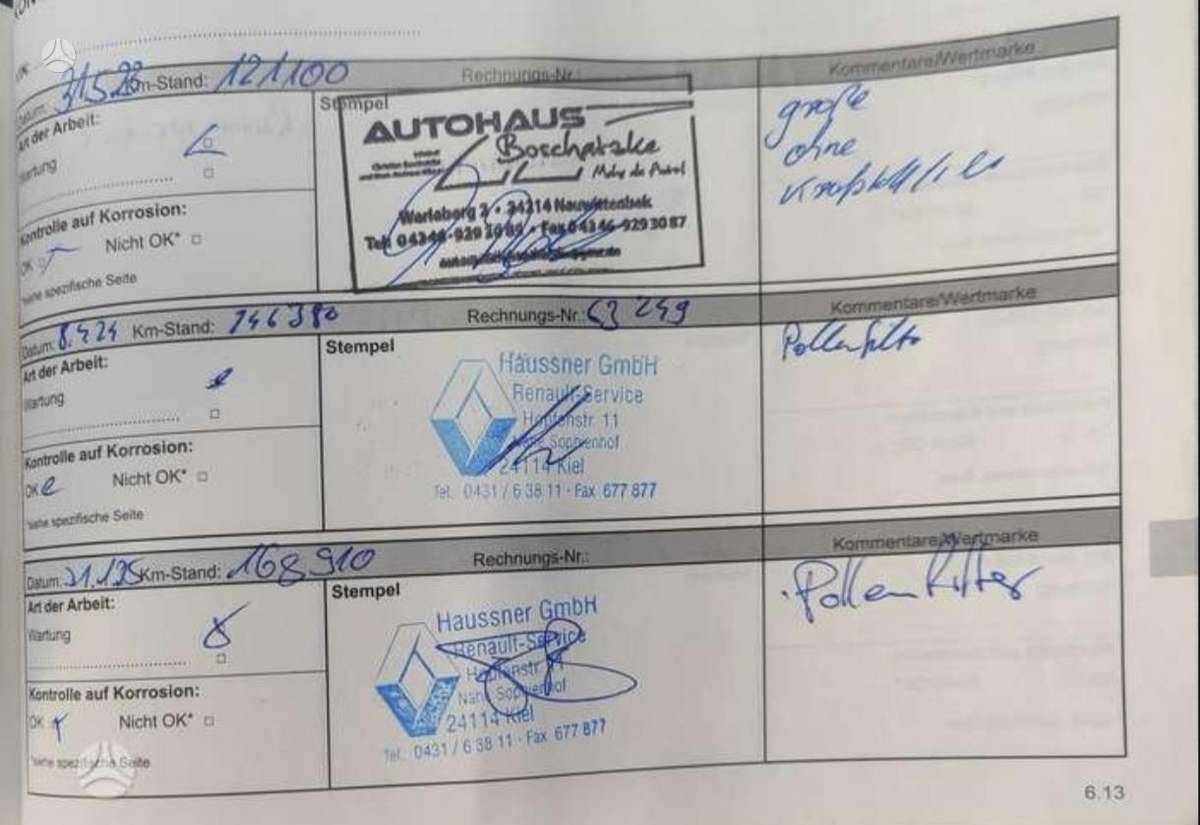 Kommentare/Wertmarke
Datum: 31.5.23 Km-Stand: 121100 Rechnungs-Nr.:
Art der Arbeit:
Wartung
Kontrolle auf Korrosion:
OK Nicht OK*
*siehe spezifische Seite
Stempel
AUTOHAUS
Boschatzke
Warleberg 2 • 24214 Neuwittenbek
Tel. 04346-929 30 86 • Fax 04346-929 30 87
große
ohne
Datum: 8.4.24 Km-Stand: 146380 Rechnungs-Nr.: 63249 Kommentare/Wertmarke
Art der Arbeit:
Wartung
Kontrolle auf Korrosion:
OK Nicht OK*
*siehe spezifische Seite
Stempel
Haussner GmbH
Renault-Service
Hopfenstr. 11
Nähe Sophienhof
24114 Kiel
Tel. 0431 / 6 38 11 · Fax 677 877
Pollenfilter
Datum: 21.1.25 Km-Stand: 168910 Rechnungs-Nr.: Kommentare/Wertmarke
Art der Arbeit:
Wartung
Kontrolle auf Korrosion:
OK Nicht OK*
*siehe spezifische Seite
Stempel
Haussner GmbH
Renault-Service
Hopfenstr. 11
Nähe Sophienhof
24114 Kiel
Tel. 0431 / 6 38 11 · Fax 677 877
Pollenfilter
6.13